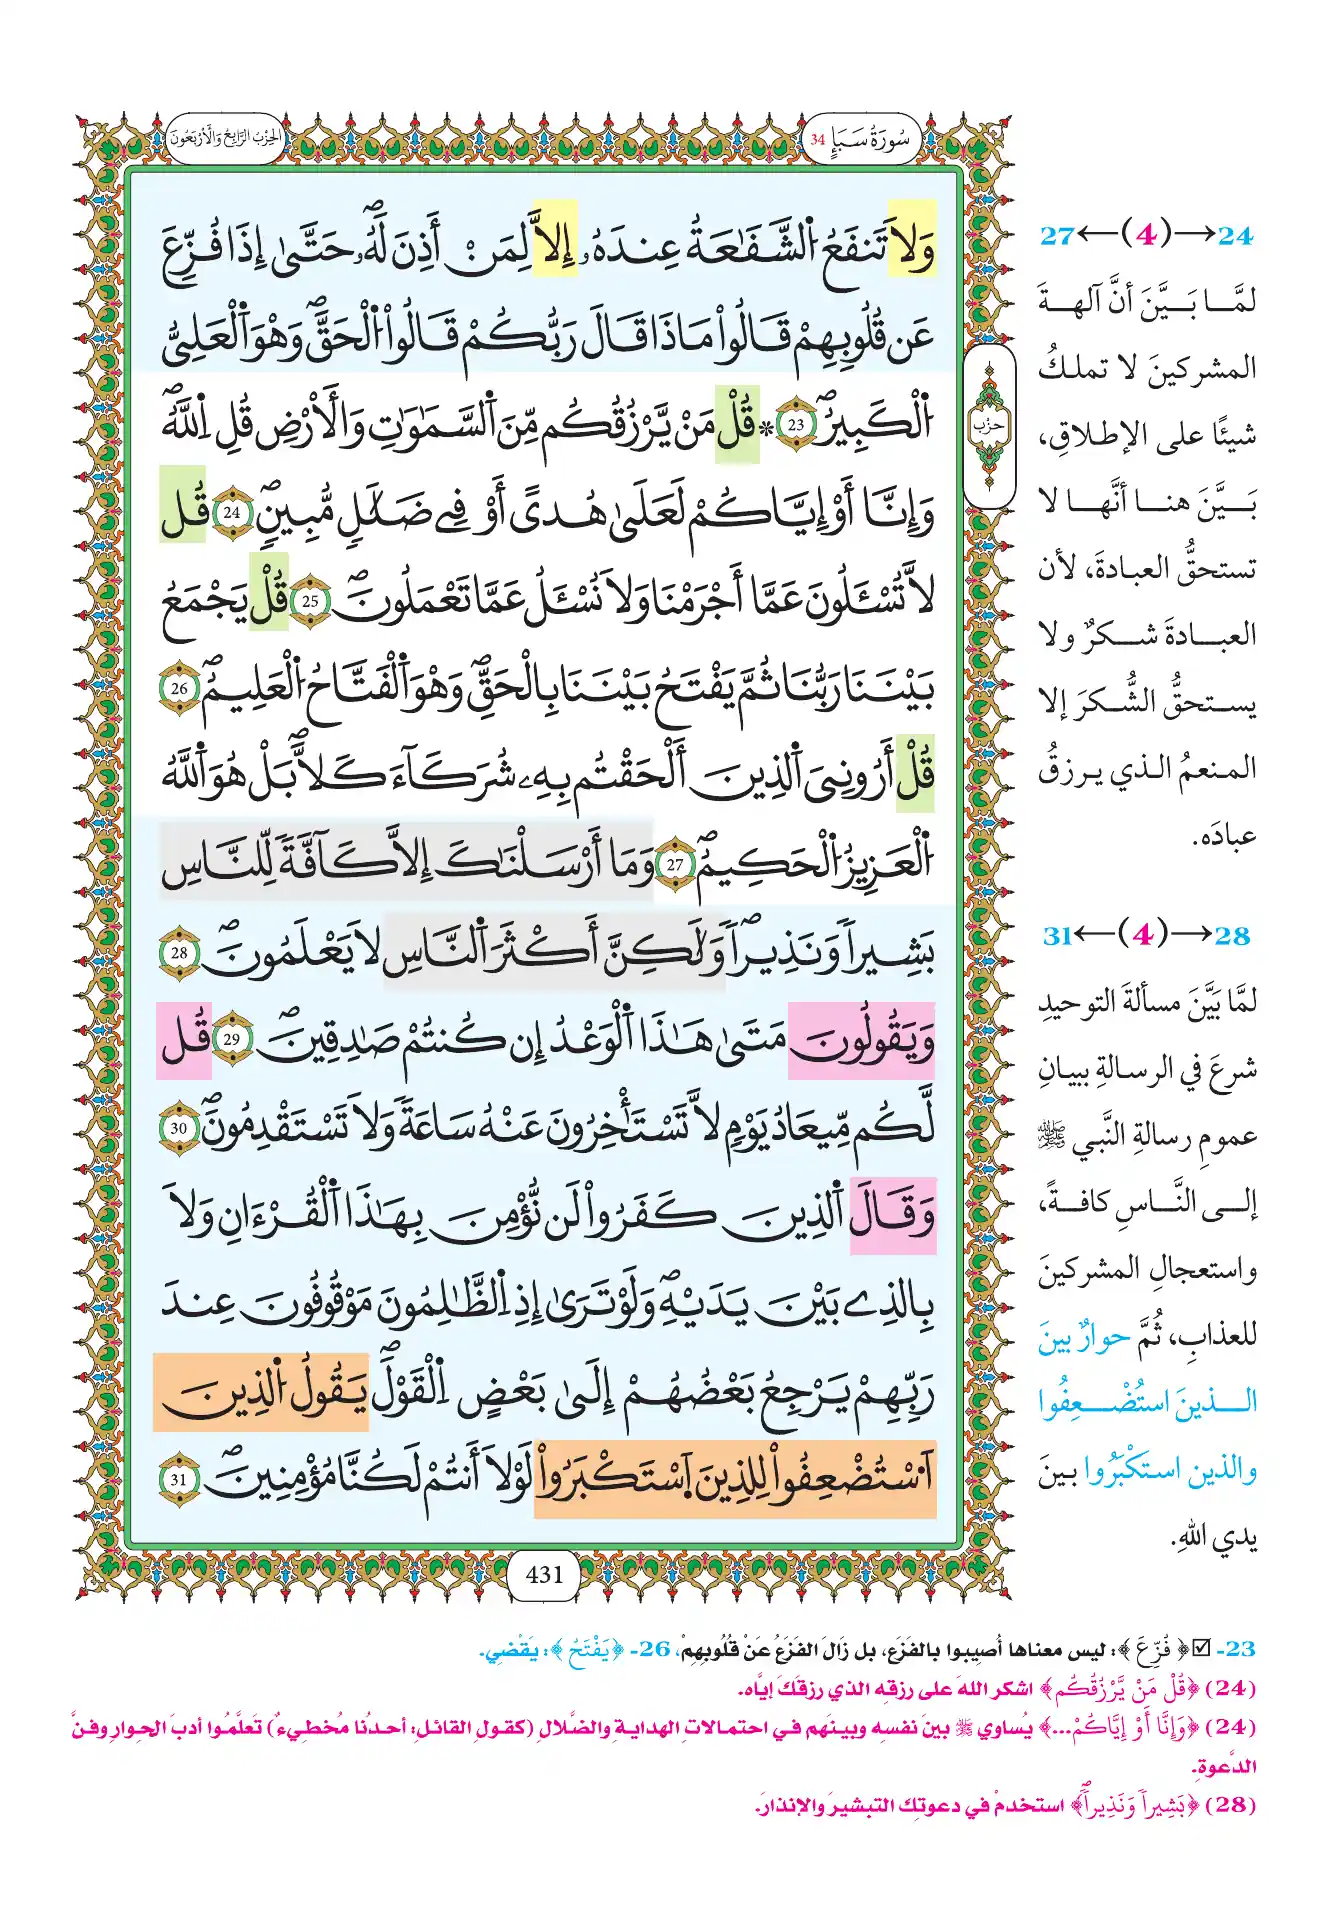 سُورَةُ سَبَإٍ 34
الحِزْبُ الرَّابِعُ وَالأَرْبَعُونَ
وَلَا تَنفَعُ اُ۬لشَّفَٰعَةُ عِندَهُۥٓ إِلَّا لِمَنْ أَذِنَ لَهُۥۖ حَتَّىٰٓ إِذَا فُزِّعَ
عَن قُلُوبِهِمْ قَالُواْ مَاذَا قَالَ رَبُّكُمْ قَالُواْ اُ۬لْحَقَّۖ وَهْوَ اَ۬لْعَلِيُّ
اُ۬لْكَبِيرُۖ 23 * قُلْ مَنْ يَّرْزُقُكُم مِّنَ اَ۬لسَّمَٰوَٰتِ وَالْأَرْضِ قُلِ اِ۬للَّهُۖ
وَإِنَّا أَوْ إِيَّاكُمْ لَعَلَىٰ هُدىً أَوْ فِے ضَلَٰلٖ مُّبِينٖۖ 24 قُل
لَّا تُسْـَٔلُونَ عَمَّا أَجْرَمْنَا وَلَا نُسْـَٔلُ عَمَّا تَعْمَلُونَۖ 25 قُلْ يَجْمَعُ
بَيْنَنَا رَبُّنَا ثُمَّ يَفْتَحُ بَيْنَنَا بِالْحَقِّۖ وَهْوَ اَ۬لْفَتَّاحُ اُ۬لْعَلِيمُۖ 26
قُلْ أَرُونِيَ اَ۬لذِينَ أَلْحَقْتُم بِهِۦ شُرَكَآءَ كَلَّاۖ بَلْ هُوَ اَ۬للَّهُ
اُ۬لْعَزِيزُ اُ۬لْحَكِيمُۖ 27 وَمَا أَرْسَلْنَٰكَ إِلَّا كَآفَّةٗ لِّلنَّاسِ
بَشِيراٗ وَنَذِيراٗۖ وَلَٰكِنَّ أَكْثَرَ اَ۬لنَّاسِ لَا يَعْلَمُونَۖ 28
وَيَقُولُونَ مَتَىٰ هَٰذَا اَ۬لْوَعْدُ إِن كُنتُمْ صَٰدِقِينَۖ 29 قُل
لَّكُم مِّيعَادُ يَوْمٖ لَّا تَسْتَـْٔخِرُونَ عَنْهُ سَاعَةٗ وَلَا تَسْتَقْدِمُونَۖ 30
وَقَالَ اَ۬لذِينَ كَفَرُواْ لَن نُّؤْمِنَ بِهَٰذَا اَ۬لْقُرْءَانِ وَلَا
بِالذِے بَيْنَ يَدَيْهِۖ وَلَوْ تَرَىٰٓ إِذِ اِ۬لظَّٰلِمُونَ مَوْقُوفُونَ عِندَ
رَبِّهِمْ يَرْجِعُ بَعْضُهُمْ إِلَىٰ بَعْضٍ اِ۬لْقَوْلَۖ يَقُولُ اُ۬لذِينَ
اَ۟سْتُضْعِفُواْ لِلذِينَ اَ۪سْتَكْبَرُواْ لَوْلَا أَنتُمْ لَكُنَّا مُؤْمِنِينَۖ 31
حزب
431
24→(4)←27
لمَّا بَيَّنَ أنَّ آلهةَ
المشركينَ لا تملكُ
شيئًا على الإطلاقِ،
بَيَّنَ هنا أنَّها لا
تستحقُّ العبادةَ، لأن
العبادةَ شكرٌ ولا
يستحقُّ الشُّكرَ إلا
المنعمُ الذي يرزقُ
عبادَه.
28→(4)←31
لمَّا بَيَّنَ مسألةَ التوحيدِ
شرعَ في الرسالةِ ببيانِ
عمومِ رسالةِ النَّبي ﷺ
إلى النَّاسِ كافةً،
واستعجالِ المشركينَ
للعذابِ، ثُمَّ حوارٌ بينَ
الذينَ استُضْعِفُوا
والذين استَكْبَرُوا بينَ
يدي اللهِ.
23- ☑ ﴿فُزِّعَ﴾: ليس معناها أُصِيبوا بالفَزَعِ، بل زَالَ الفَزَعُ عَنْ قُلُوبِهِمْ، 26- ﴿يَفْتَحُ﴾: يَقْضِي.
(24) ﴿قُلْ مَنْ يَّرْزُقُكُم﴾ اشكر اللهَ على رزقِه الذي رزقَكَ إيَّاه.
(24) ﴿وَإِنَّا أَوْ إِيَّاكُمْ...﴾ يُساوي ﷺ بينَ نفسِه وبينَهم في احتمالاتِ الهدايةِ والضَّلالِ (كقولِ القائلِ: أحدُنا مُخطِيءٌ) تَعلَّمُوا أدبَ الحِوارِ وفنَّ
الدَّعوةِ.
(28) ﴿بَشِيراٗ وَنَذِيراٗۖ﴾ استخدمْ في دعوتِك التبشيرَ والإنذارَ.